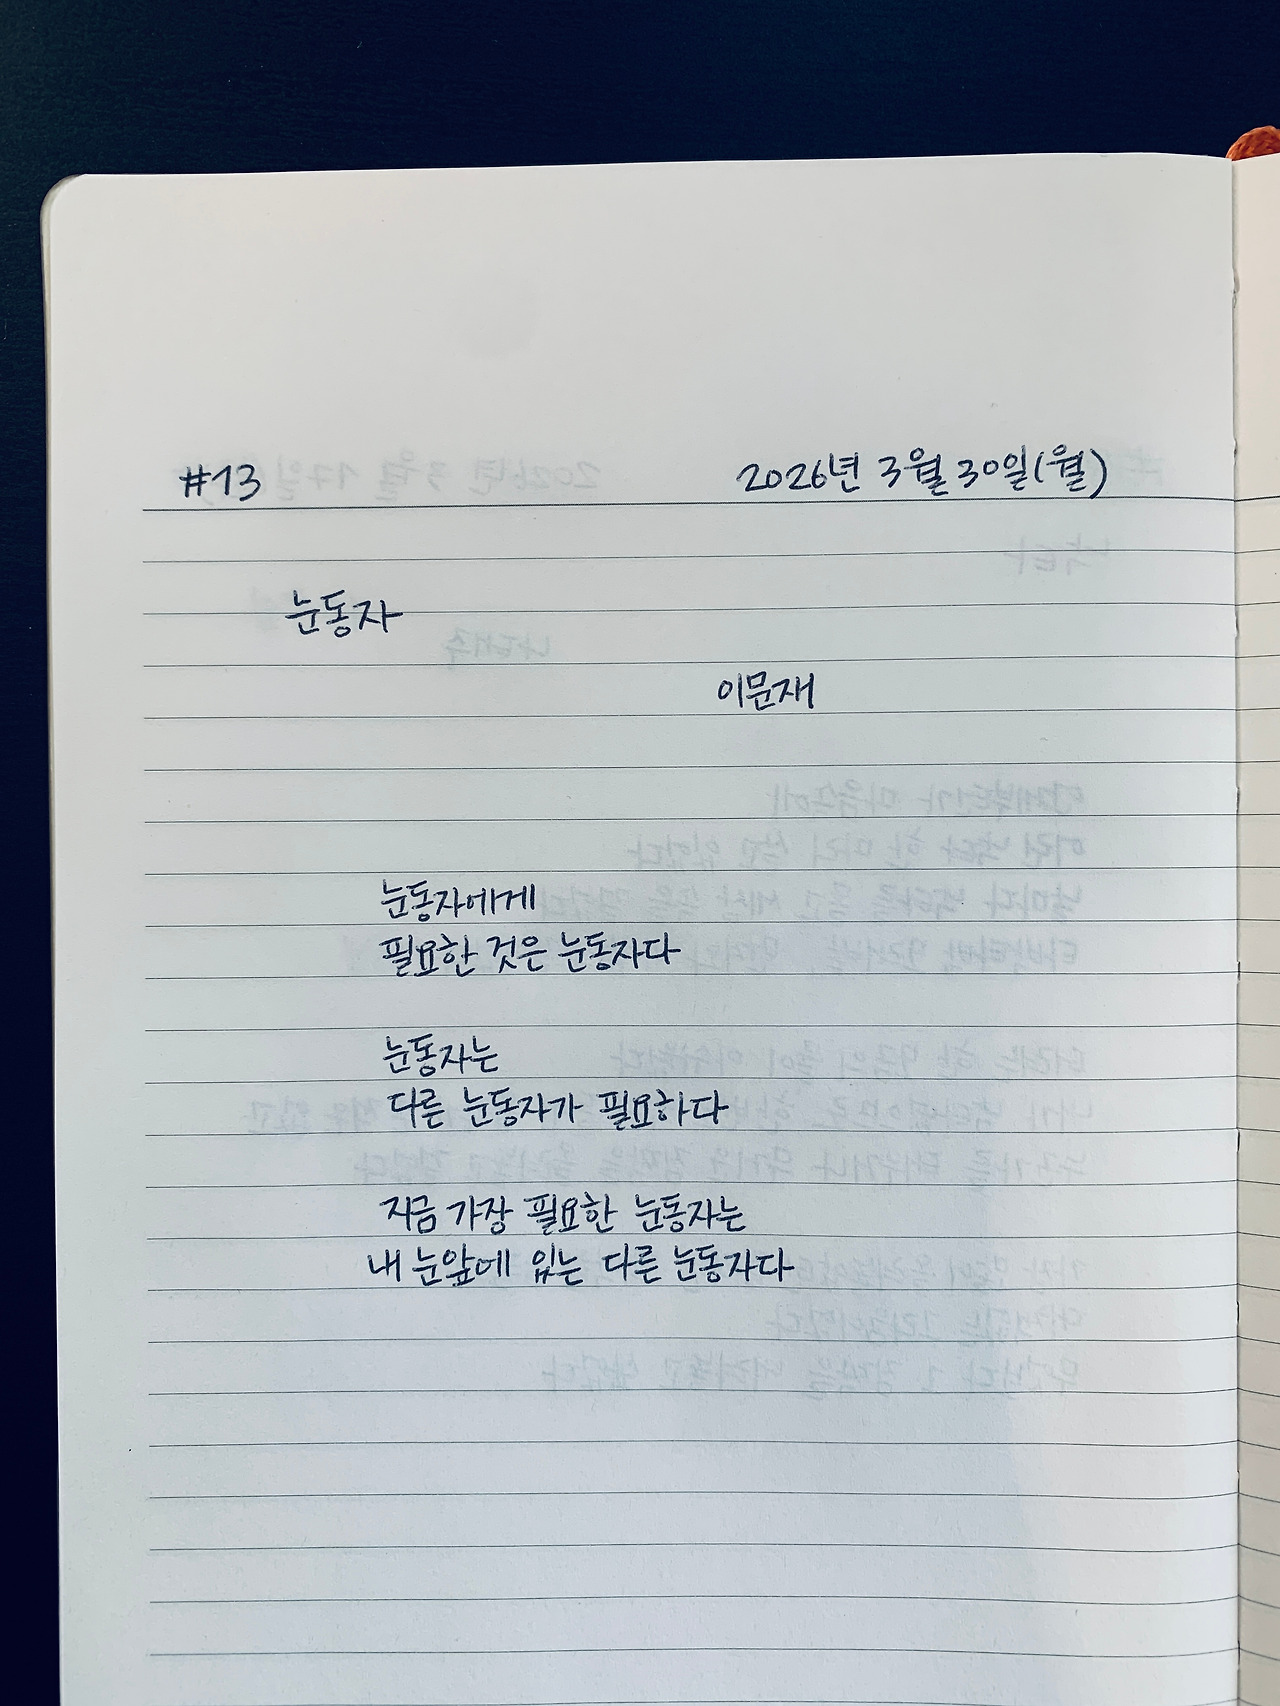 #13 2026년 3월 30일(월)
눈동자
이문재
눈동자에게
필요한 것은 눈동자다
눈동자는
다른 눈동자가 필요하다
지금 가장 필요한 눈동자는
내 눈앞에 있는 다른 눈동자다